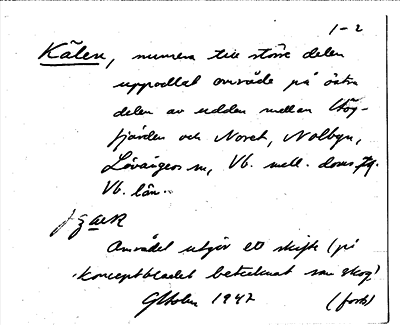 1-2
Kälen, numera till större delen
uppodlat område på östra
delen av udden mellan Hög-
fjärden och Noret, Nolbyn,
Lövångers sn, Vb. mell. doms.
Vb. län.
Området utgör ett skifte (på
konceptbladet betecknat som skog)
GHolm 1947 (forts)